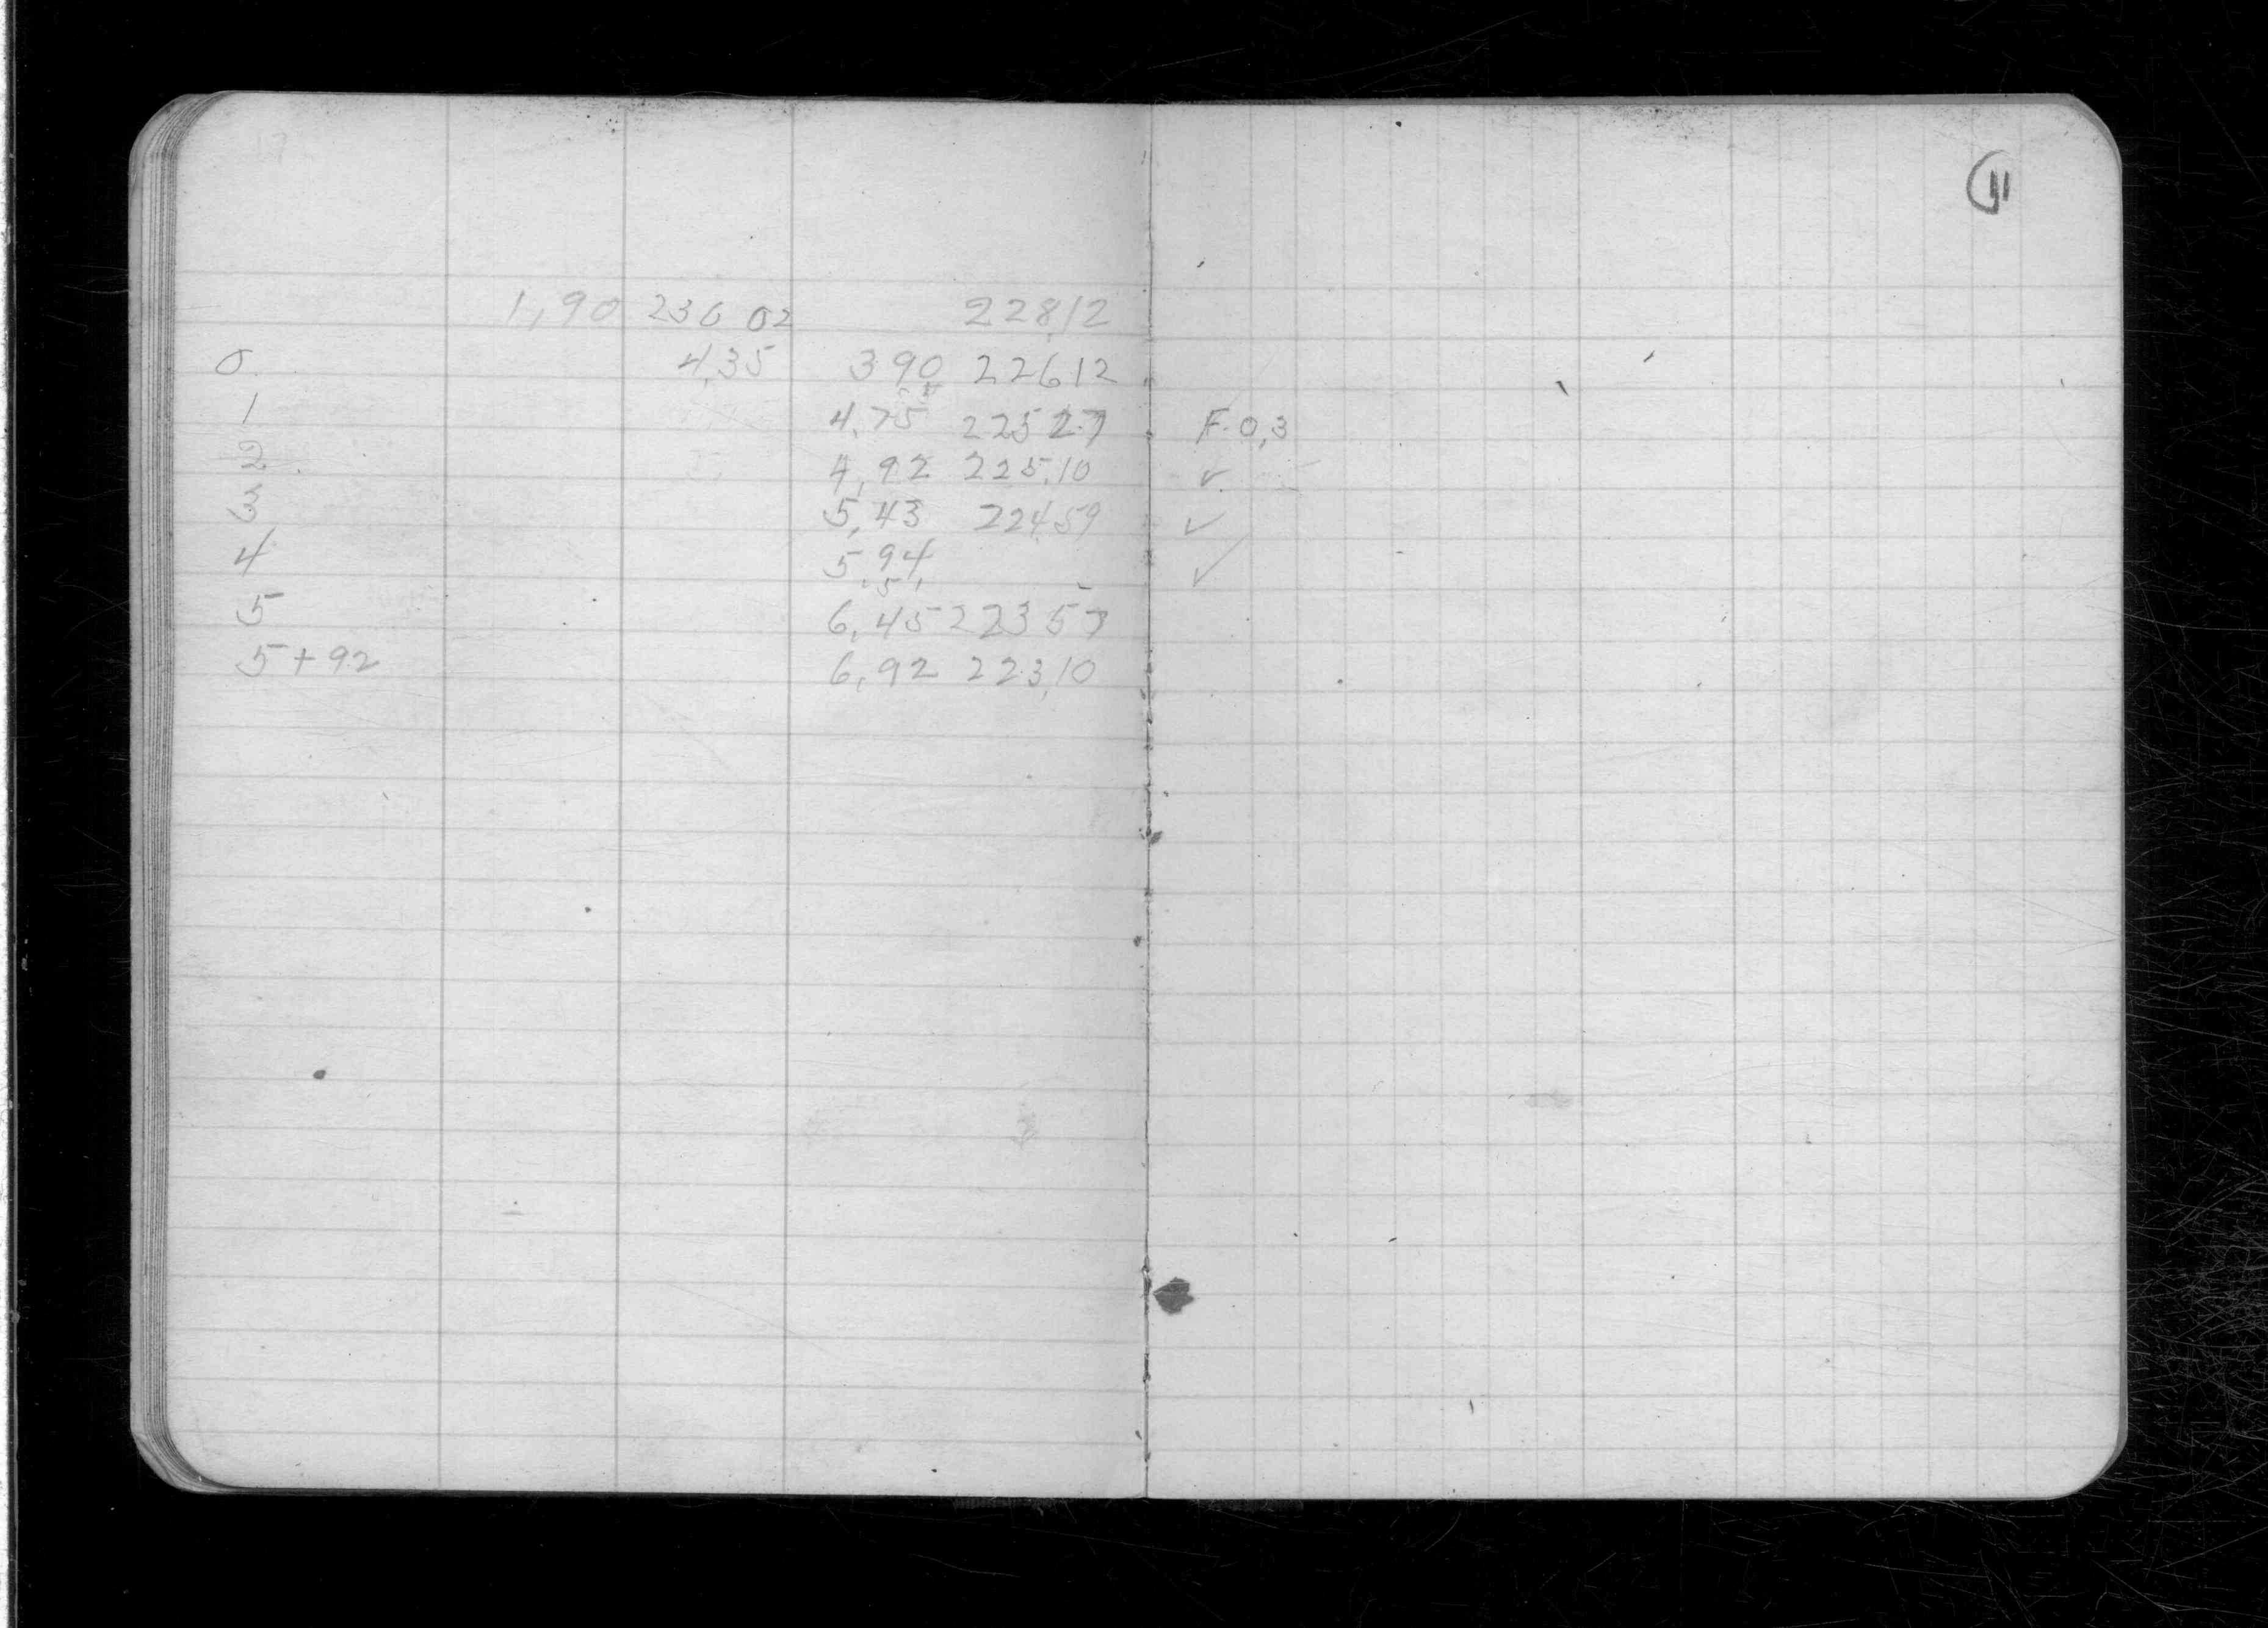 11
1,90 230 02 228,12
0 4,35 3 90 226 12
1 4,75 225 27 F. 0,3
2 4,92 225,10 ✓
3 5,43 224,59 ✓
4 5,94 ✓
5 6,45 223 57
5+92 6,92 223,10